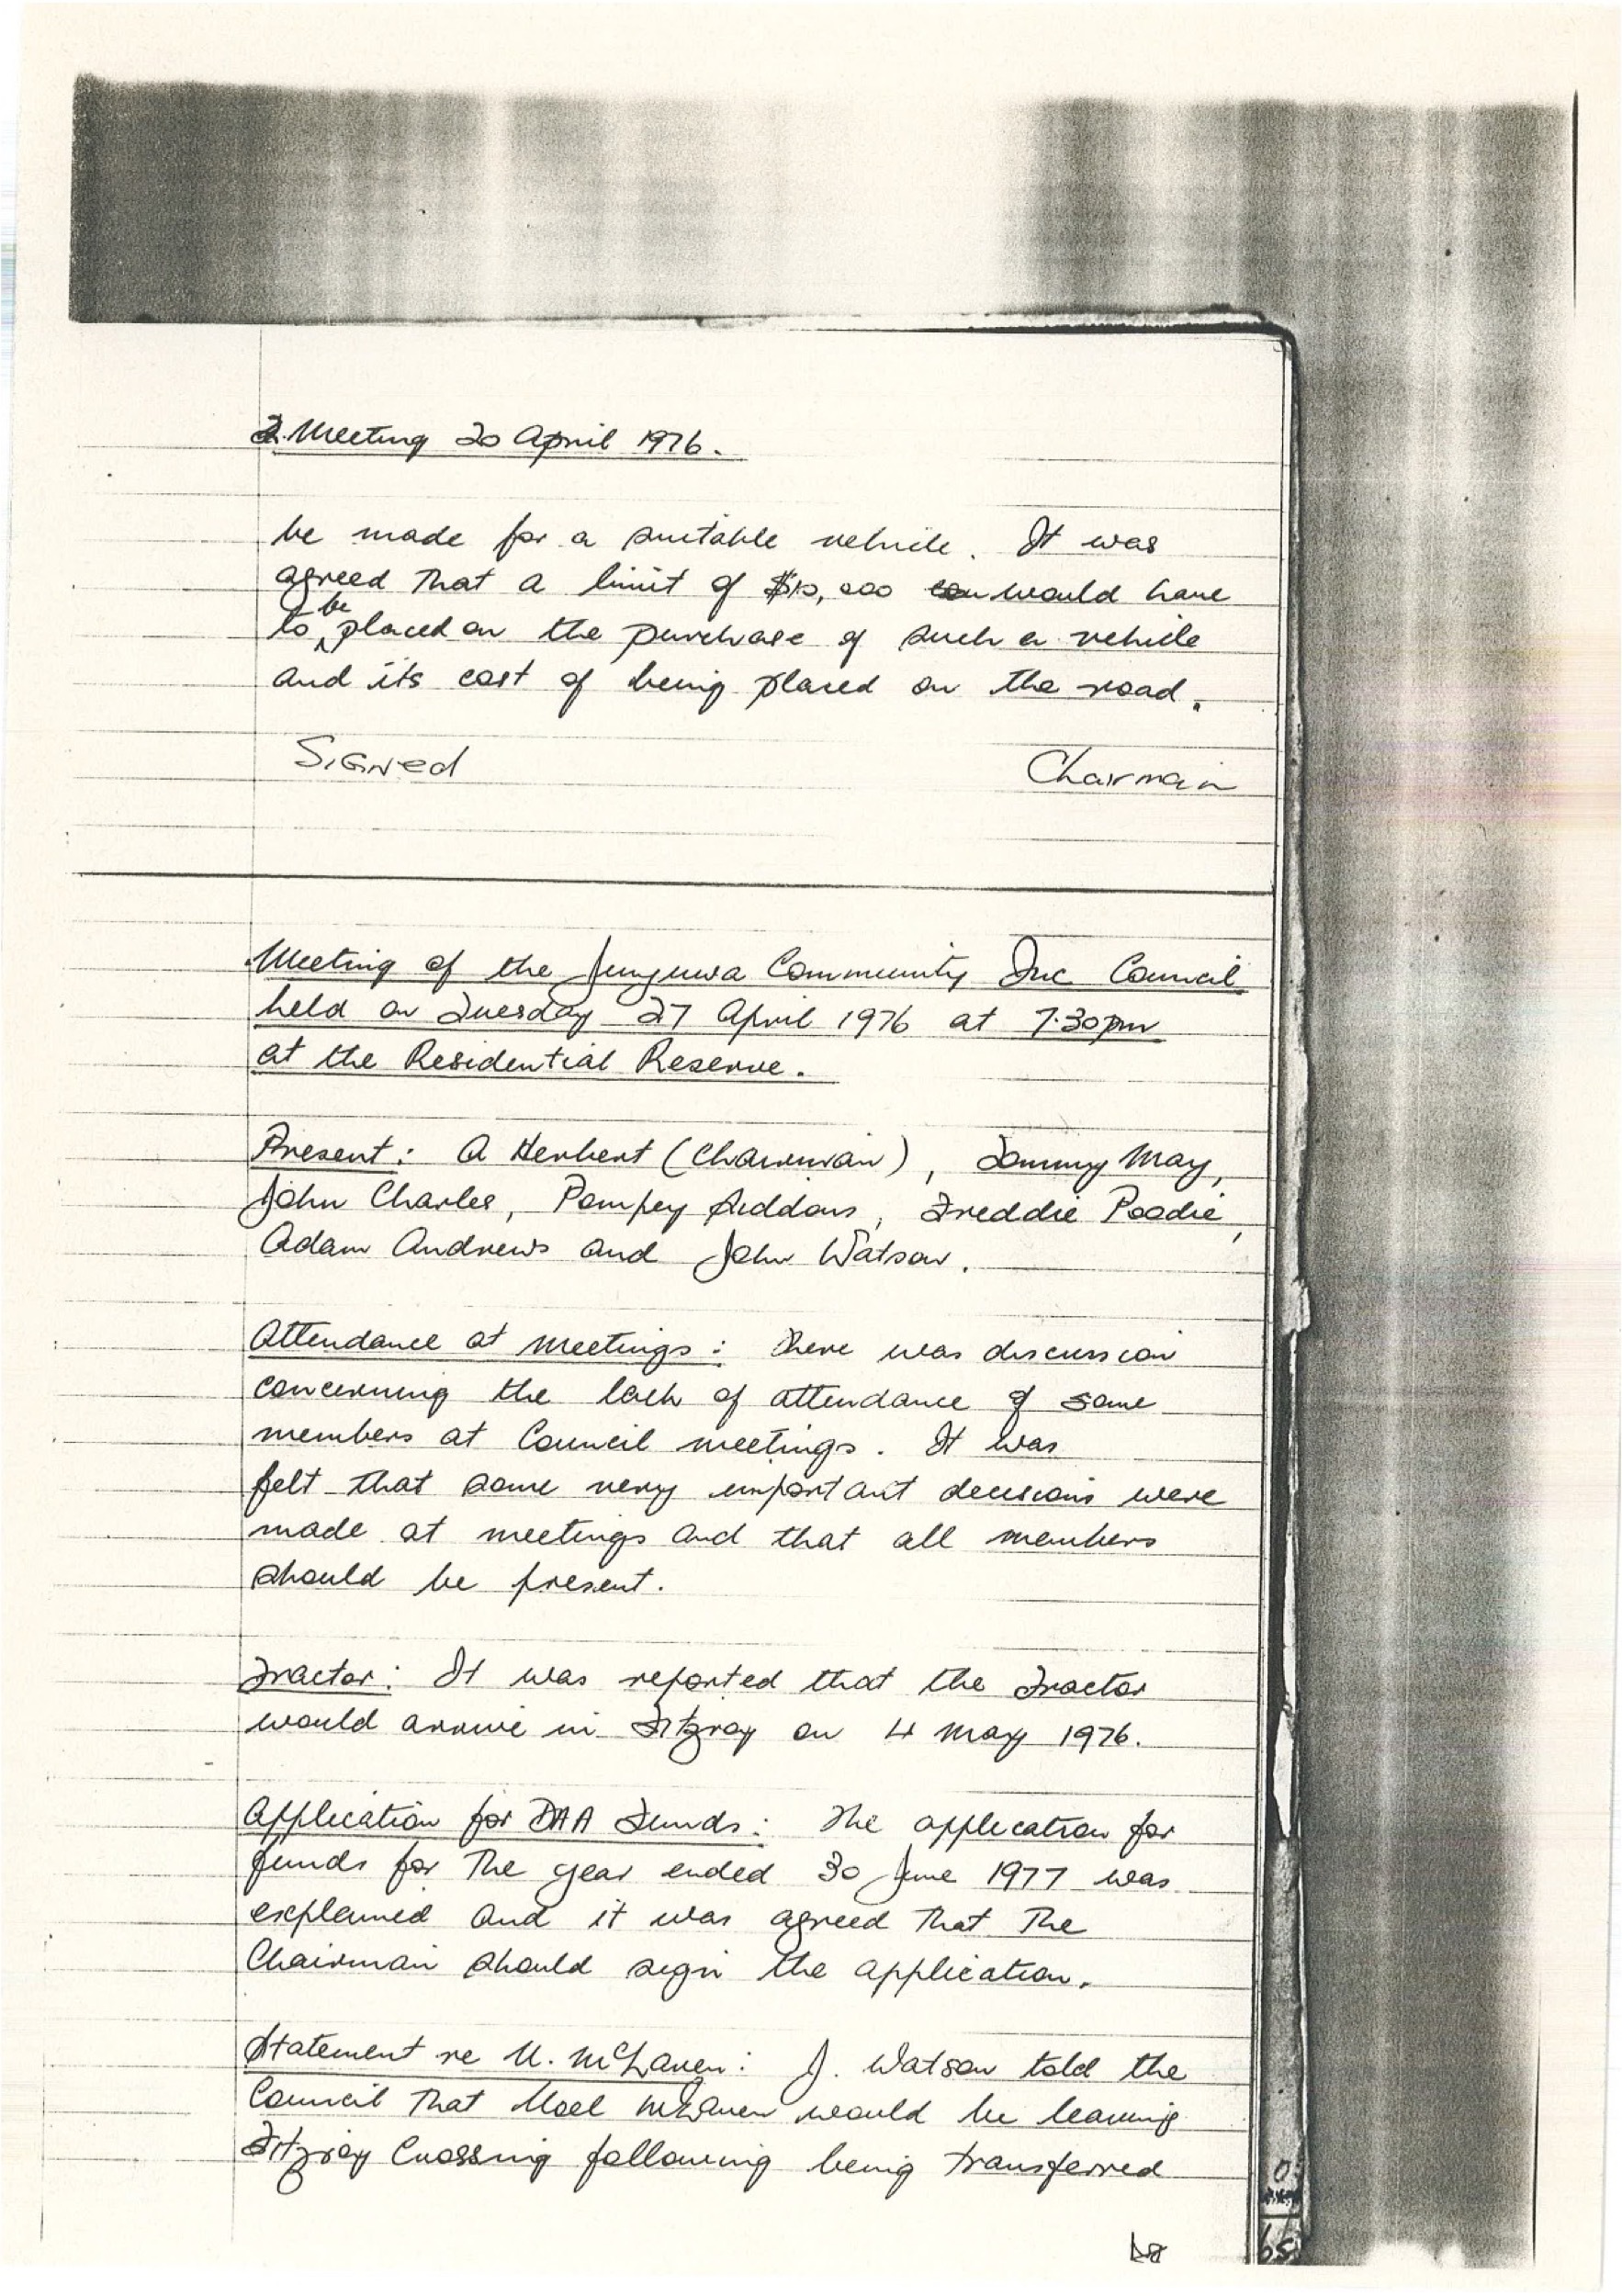 2. Meeting 20 April 1976.
be made for a suitable vehicle. It was
agreed that a limit of $10,000 would have
to be placed on the purchase of such a vehicle
and its cost of being placed on the road.
Signed Chairman
Meeting of the Junjuwa Community Inc Council
held on Tuesday 27 April 1976 at 7.30pm
at the Residential Reserve.
Present: A Herbert (Chairman), Tommy May,
John Charles, Pompey Siddons, Freddie Poodie,
Adam Andrews and John Watson.
Attendance at meetings: There was discussion
concerning the lack of attendance of some
members at Council meetings. It was
felt that some very important decisions were
made at meetings and that all members
should be present.
Tractor: It was reported that the Tractor
would arrive in Fitzroy on 4 May 1976.
Application for DAA Funds: The application for
funds for the year ended 30 June 1977 was
explained and it was agreed that the
Chairman should sign the application.
Statement re N. McLaren: J. Watson told the
Council that Noel McLaren would be leaving
Fitzroy Crossing following being transferred